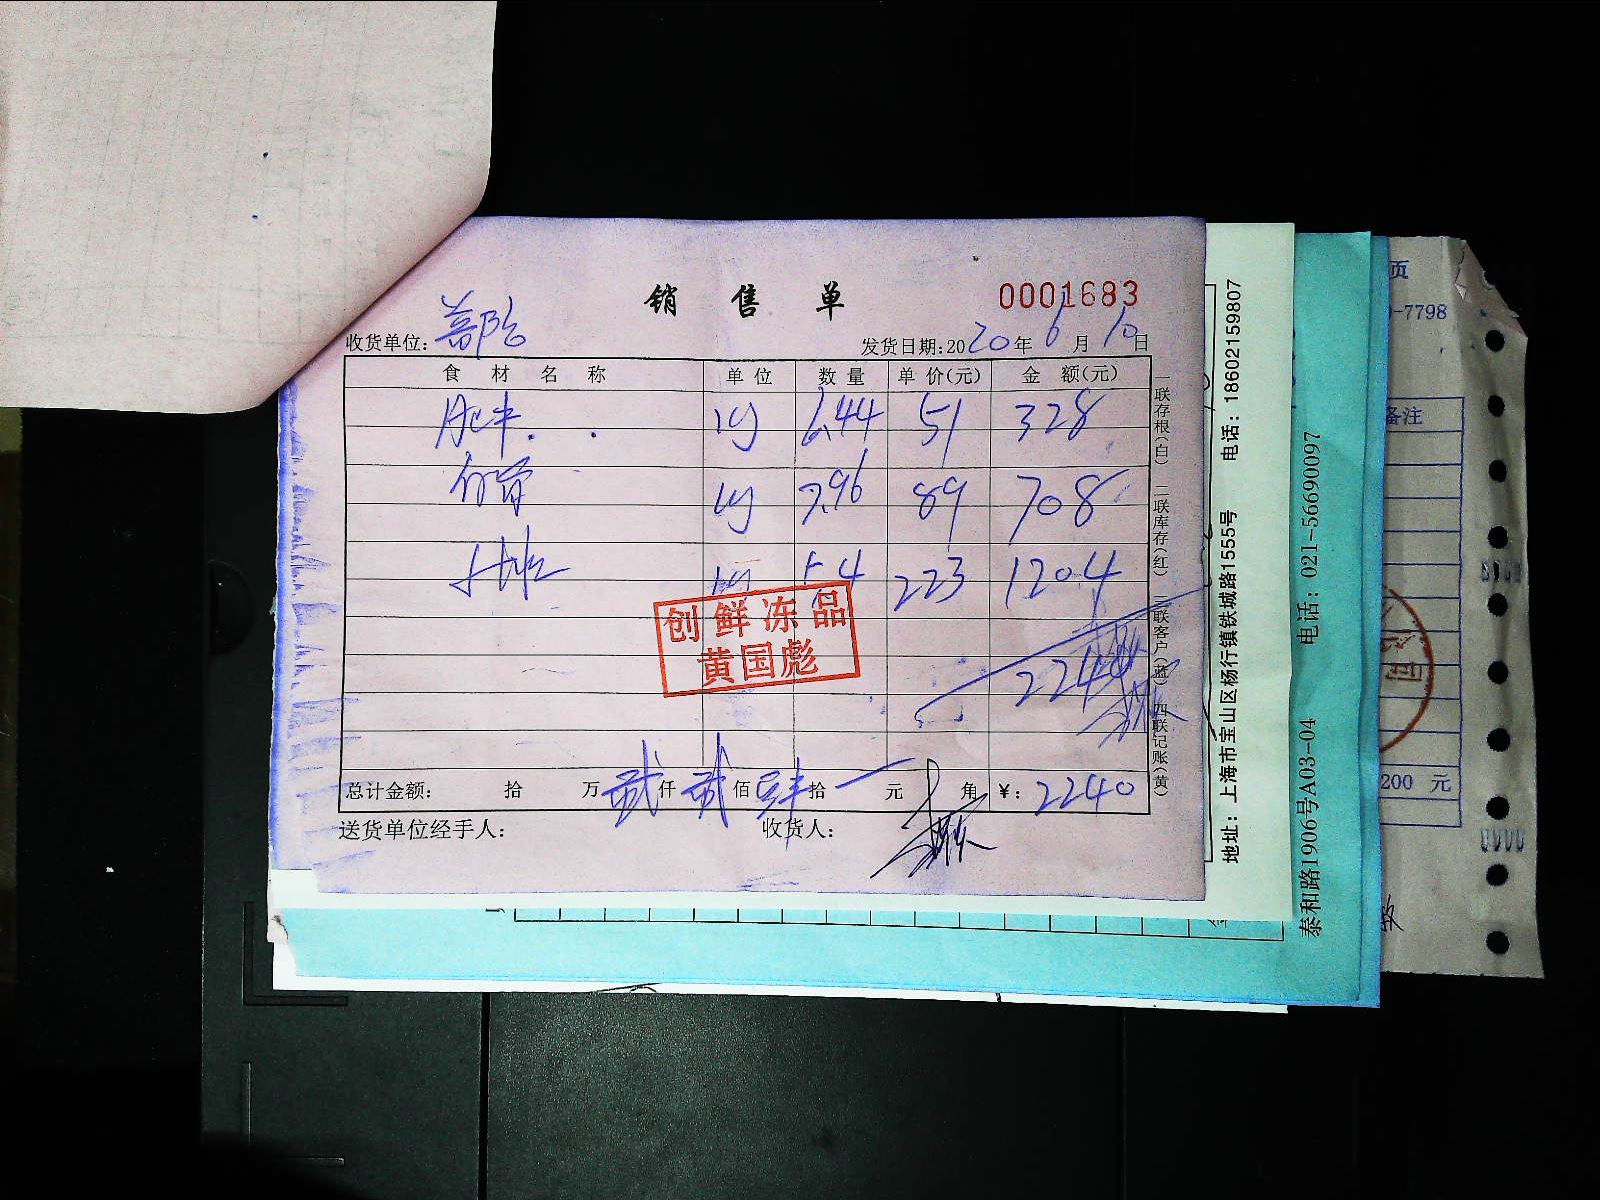 销售单
0001683
收货单位：
发货日期:2020年6月10日
食材名称 单位 数量 单价(元) 金额(元)
肥牛 kg 6.44 51 328
kg 7.96 89 708
kg 5.4 223 1204
创鲜冻品
黄国彪
2240
总计金额： 拾 万 贰 仟 贰 佰 肆 拾 元 角 ￥：2240
送货单位经手人：
收货人：
一联存根(白) 二联库存(红) 三联客户(蓝) 四联记账(黄)
地址：上海市宝山区杨行镇铁城路1555号 电话：18602159807
泰和路1906号A03-04 电话：021-56690097
页
-7798
备注
200 元